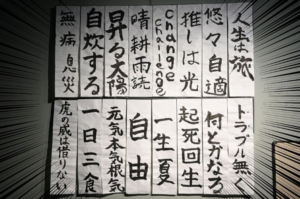 人生は旅
悠々自適
推しは光
change
challenge
晴耕雨読
昇る太陽
自炊する
無病息災
トラブル無く
何とかなろ
起死回生
一生夏
自由
元気本気根気
一日三食
虎の威は借りない